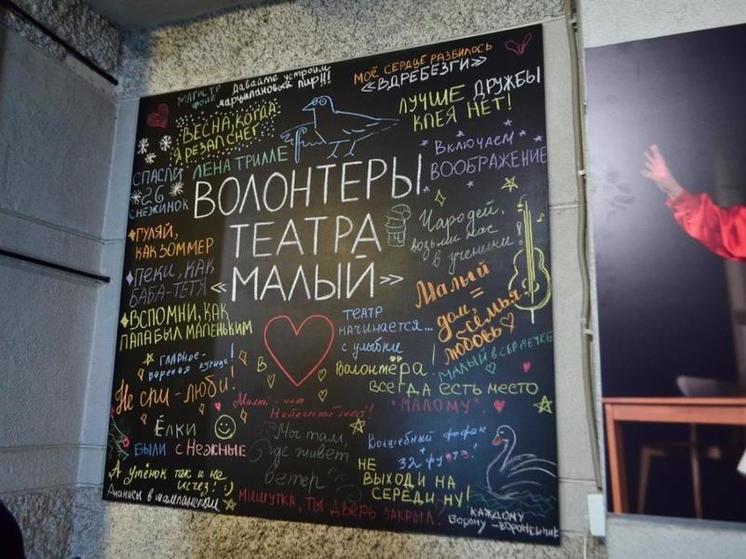 МАГИСТР
ФОНЕ
Давайте устроим
марципановый пир!!!
МОЁ СЕРДЦЕ РАЗБИЛОСЬ
«ВДРЕБЕЗГИ»
ЛУЧШЕ ДРУЖБЫ
КЛЕЯ НЕТ!
ВЕСНА, КОГДА
Я РЕЗАЛ СНЕГ
ЛЕНА ТРИЛЛЕ
Включаем
ВООБРАЖЕНИЕ
СПАСЛИ
26
СНЕЖИНОК
ВОЛОНТЕРЫ
ТЕАТРА
«МАЛЫЙ»
Чародей,
возьми нас
в ученики!
ГУЛЯЙ,
КАК ЗОММЕР
ПЕКИ, КАК
БАБА-ТЕТЯ
ВСПОМНИ, КАК
ПАПА БЫЛ МАЛЕНЬКИМ
Малый
=
дом,
семья,
любовь
ТЕАТР
начинается...
с улыбки
ГЛАВНОЕ-
вареная курица!
Волонтёра!
ВСЕГДА ЕСТЬ МЕСТО
"МАЛОМУ"
МАЛЫЙ В СЕРДЕЧКЕ
Не спи-люби!
Малый-
ЁЛКИ
БЫЛИ СНЕЖНЫЕ
Мы там,
где живет
ветер
Волшебный
+
32
НЕ
ВЫХОДИ НА
СЕРЕДИНУ!
А утёнок так и не
исчез! :)
Ананасы в шампанском
МИШУТКА, ТЫ ДВЕРЬ ЗАКРЫЛ.
КАЖДОМУ
ворону -